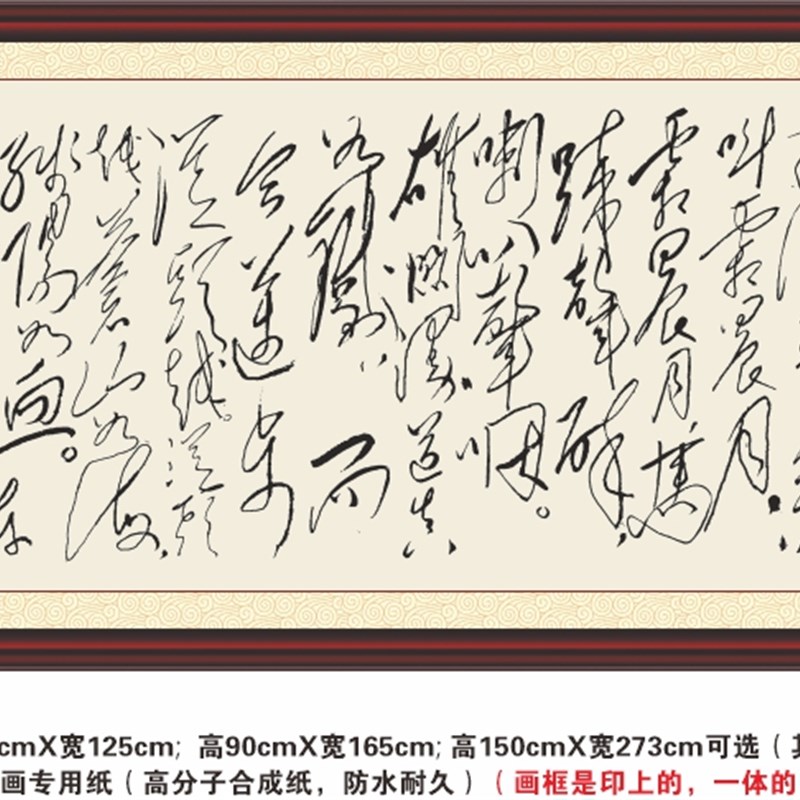 叫霜晨月。
霜晨月，馬
蹄聲碎，
喇叭聲咽。
雄關漫道真
如鐵，而
今邁步
從頭越。從頭
越，蒼山如海，
殘陽如血。
cmX宽125cm; 高90cmX宽165cm; 高150cmX宽273cm可选（
画专用纸（高分子合成纸，防水耐久）（画框是印上的，一体的